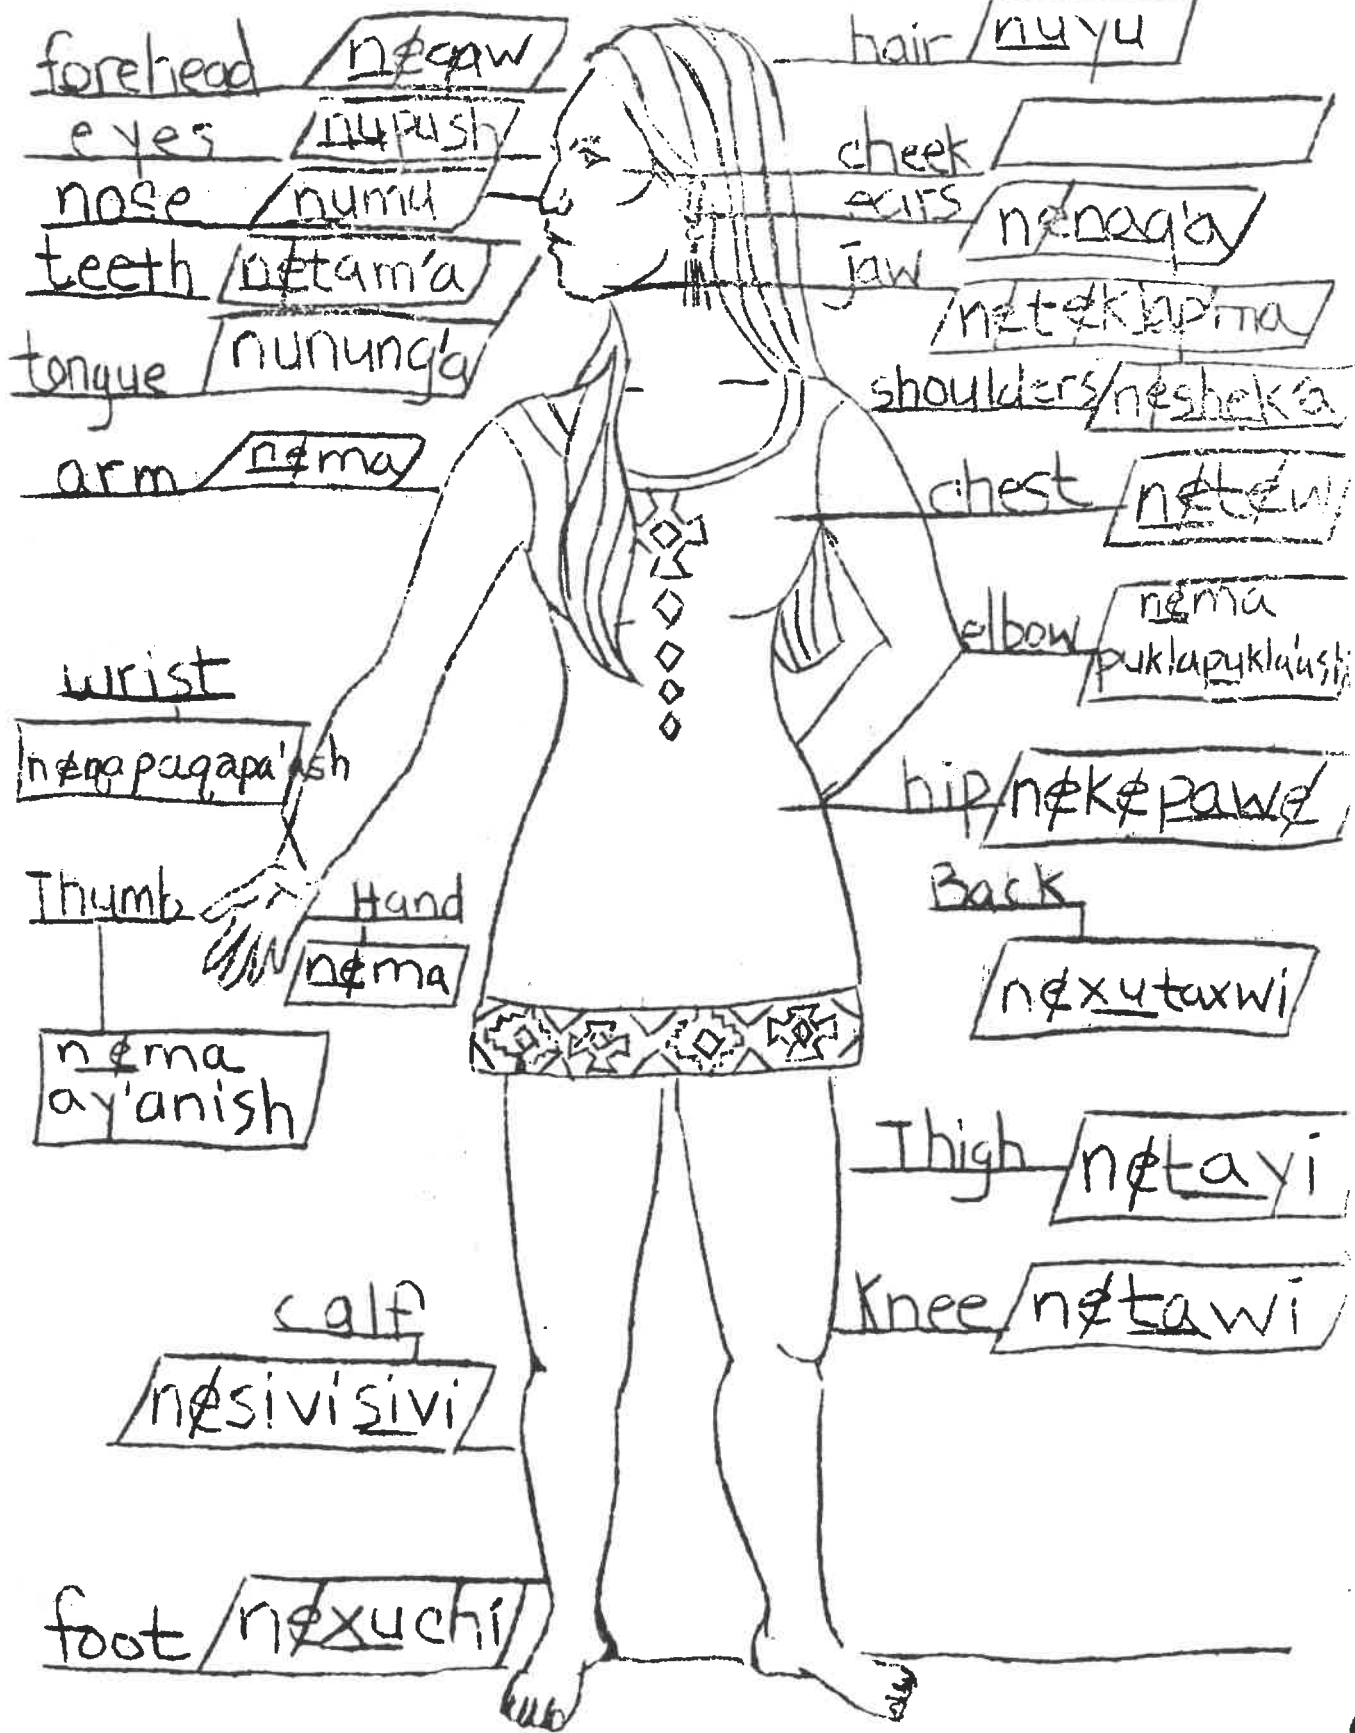 forehead nɇqaw
eyes nupush
nose numu
teeth nɇtam'a
tongue nunung'a
arm nɇma
wrist
Thumb
nɇma
ay'anish
Hand
nɇma
calf
nɇsivisivi
foot nɇxuchi
hair nuyu
cheek
ears nɇnaq'a
jaw
shoulders nɇshɇk'a
chest nɇtɇw
elbow nɇma
hip nɇkɇpawɇ
Back
nɇxutaxwi
Thigh nɇtayi
Knee nɇtawi